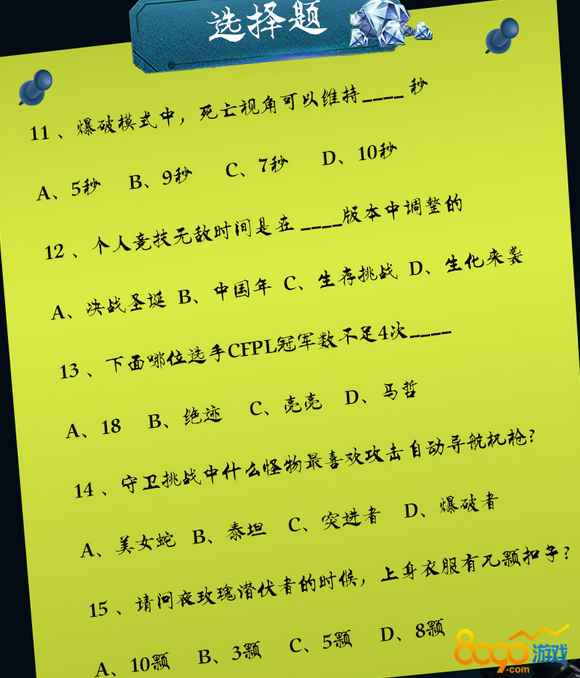 选择题
11、爆破模式中，死亡视角可以维持____ 秒
A、5秒 B、9秒 C、7秒 D、10秒
12、个人竞技无敌时间是在 ____版本中调整的
A、决战圣诞 B、中国年 C、生存挑战 D、生化来袭
13、下面哪位选手CFPL冠军数不足4次____
A、18 B、绝迹 C、亮亮 D、马哲
14、守卫挑战中什么怪物最喜欢攻击自动导航机枪？
A、美女蛇 B、泰坦 C、突进者 D、爆破者
15、请问夜玫瑰潜伏者的时候，上身衣服有几颗扣子？
A、10颗 B、3颗 C、5颗 D、8颗
8090游戏